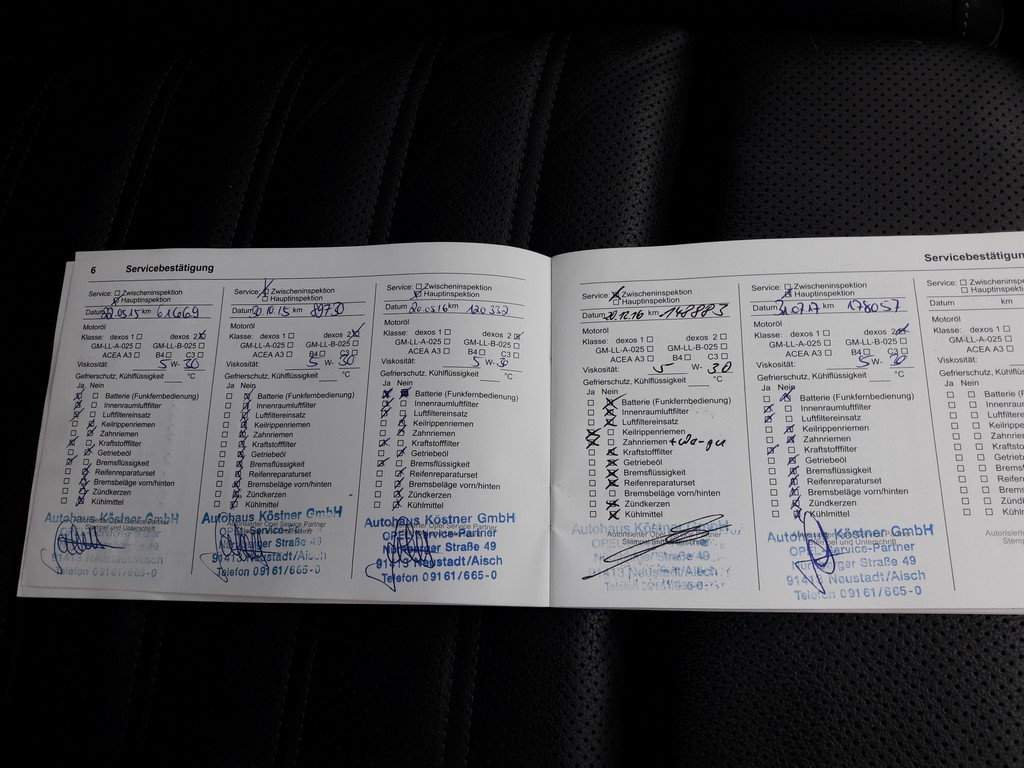 6 Servicebestätigung
Service: Zwischeninspektion
Hauptinspektion
Datum 22.05.15 km 61669
Motoröl
Klasse: dexos 1 dexos 2
GM-LL-A-025 GM-LL-B-025
ACEA A3 B4 C3
Viskosität: 5 W- 30
Gefrierschutz, Kühlflüssigkeit °C
Ja Nein
Batterie (Funkfernbedienung)
Innenraumluftfilter
Luftfiltereinsatz
Keilrippenriemen
Zahnriemen
Kraftstofffilter
Getriebeöl
Bremsflüssigkeit
Reifenreparaturset
Bremsbeläge vorn/hinten
Zündkerzen
Kühlmittel
Autohaus Köstner GmbH
Telefon 09161/665-0
Service: Zwischeninspektion
Hauptinspektion
Datum 20.10.15 km 89730
Motoröl
Klasse: dexos 1 dexos 2
GM-LL-A-025 GM-LL-B-025
ACEA A3 B4 C3
Viskosität: 5 W- 30
Gefrierschutz, Kühlflüssigkeit °C
Ja Nein
Batterie (Funkfernbedienung)
Innenraumluftfilter
Luftfiltereinsatz
Keilrippenriemen
Zahnriemen
Kraftstofffilter
Getriebeöl
Bremsflüssigkeit
Reifenreparaturset
Bremsbeläge vorn/hinten
Zündkerzen
Kühlmittel
Autohaus Köstner GmbH
Straße 49
91413 Neustadt/Aisch
Telefon 09161/665-0
Service: Zwischeninspektion
Hauptinspektion
Datum 20.05.16 km 120332
Motoröl
Klasse: dexos 1 dexos 2
GM-LL-A-025 GM-LL-B-025
ACEA A3 B4 C3
Viskosität: 5 W- 30
Gefrierschutz, Kühlflüssigkeit °C
Ja Nein
Batterie (Funkfernbedienung)
Innenraumluftfilter
Luftfiltereinsatz
Keilrippenriemen
Zahnriemen
Kraftstofffilter
Getriebeöl
Bremsflüssigkeit
Reifenreparaturset
Bremsbeläge vorn/hinten
Zündkerzen
Kühlmittel
Autohaus Köstner GmbH
OPEL Service-Partner
Nürnberger Straße 49
91413 Neustadt/Aisch
Telefon 09161/665-0
Servicebestätigun
Service: Zwischeninspektion
Hauptinspektion
Datum 20.12.16 km 148883
Motoröl
Klasse: dexos 1 dexos 2
GM-LL-A-025 GM-LL-B-025
ACEA A3 B4 C3
Viskosität: 5 W- 30
Gefrierschutz, Kühlflüssigkeit °C
Ja Nein
Batterie (Funkfernbedienung)
Innenraumluftfilter
Luftfiltereinsatz
Keilrippenriemen
Zahnriemen
Kraftstofffilter
Getriebeöl
Bremsflüssigkeit
Reifenreparaturset
Bremsbeläge vorn/hinten
Zündkerzen
Kühlmittel
Autohaus Köstner GmbH
91413 Neustadt/Aisch
Telefon 09161/665-0
Service: Zwischeninspektion
Hauptinspektion
Datum 31.07.17 km 178057
Motoröl
Klasse: dexos 1 dexos 2
GM-LL-A-025 GM-LL-B-025
ACEA A3 B4 C3
Viskosität: 5 W- 30
Gefrierschutz, Kühlflüssigkeit °C
Ja Nein
Batterie (Funkfernbedienung)
Innenraumluftfilter
Luftfiltereinsatz
Keilrippenriemen
Zahnriemen
Kraftstofffilter
Getriebeöl
Bremsflüssigkeit
Reifenreparaturset
Bremsbeläge vorn/hinten
Zündkerzen
Kühlmittel
Autohaus Köstner GmbH
OPEL Service-Partner
Nürnberger Straße 49
91413 Neustadt/Aisch
Telefon 09161/665-0
Service: Zwischeninsp
Hauptinspekt
Datum km
Motoröl
Klasse: dexos 1
GM-LL-A-025
ACEA A3
Viskosität:
Gefrierschutz, Kühlflüssigk
Ja Nein
Batterie (F
Innenraum
Luftfiltere
Keilrippen
Zahnriem
Kraftsto
Getriebe
Bremsfl
Reifenre
Bremsbe
Zündker
Kühlm
Autorisierte
Stem